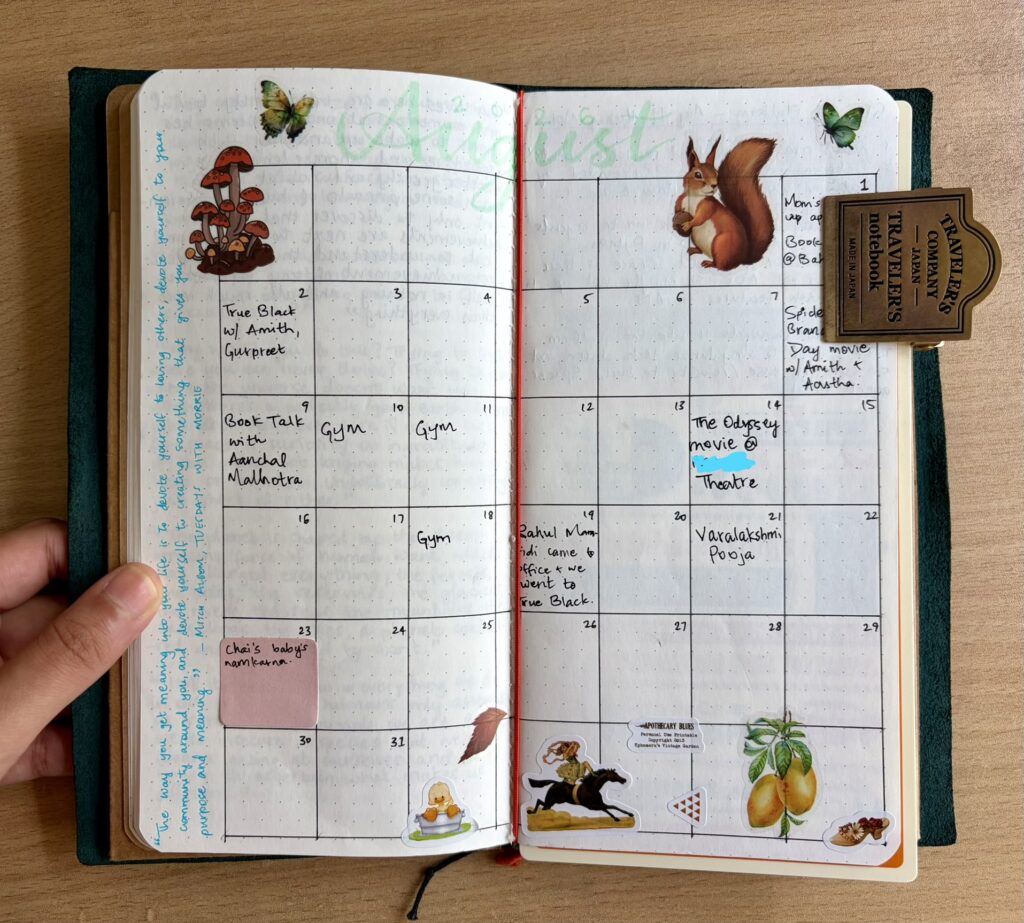 2026
August
1
Mom's
up
Book
@
2
True Black
w/ Amith,
Gurpreet
3
4
5
6
7
Brand
Day movie
w/ Amith +
Aastha.
9
Book Talk
with
Aanchal
Malhotra
10
Gym
11
Gym
12
13
14
The Odyssey
movie @
Theatre
15
16
17
18
Gym
19
Rahul Mam-
idi came to
office + we
went to
True Black.
20
21
Varalakshmi
Pooja
22
23
Chai's baby's
namkarna.
24
25
26
27
28
29
30
31
APOTHECARY BLUES
Personal Use Printable
Copyright 2013
Ephemera's Vintage Garden
"The way you get meaning into your life is to devote yourself to loving others, devote yourself to your
community around you, and devote yourself to creating something that gives you
purpose and meaning." — MITCH ALBOM, TUESDAYS WITH MORRIE
TRAVELER'S
COMPANY
JAPAN
TRAVELER'S
notebook
MADE IN JAPAN